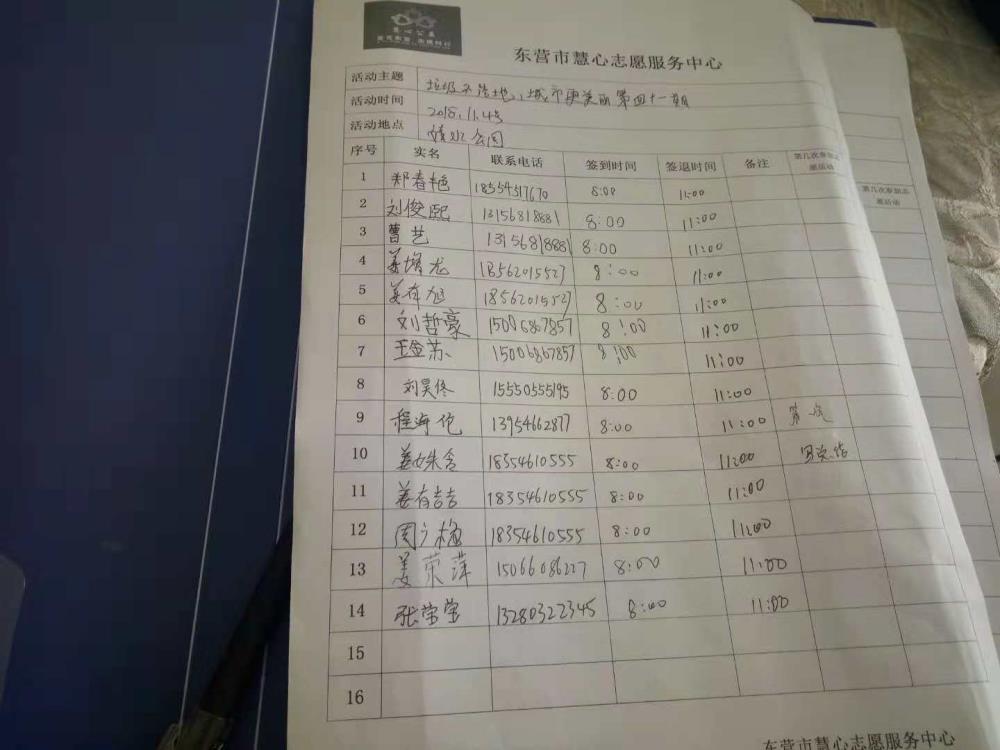 慧心公益
东营市慧心志愿服务中心
活动主题 垃圾不落地,城市更美丽第四十一期
活动时间 2018.11.4号
活动地点 清风公园
序号 实名 联系电话 签到时间 签退时间 备注 第几次参加志愿活动
第几次参加志愿活动
1 郑春艳 18354517670 8:00 11:00
2 刘俊熙 13156818881 8:00 11:00
3 曹艺 13156818881 8:00 11:00
4 姜增龙 18562015527 8:00 11:00
5 姜存旭 18562015527 8:00 11:00
6 刘哲豪 15006867857 8:00 11:00
7 王金苏 15006867857 8:00 11:00
8 刘昊佟 15550555195 8:00 11:00
9 程海伦 13954662877 8:00 11:00
10 姜姝含 18354610555 8:00 11:00
11 姜有吉 18354610555 8:00 11:00
12 周广梅 18354610555 8:00 11:00
13 姜荣萍 15066086227 8:00 11:00
14 张莹莹 13280322345 8:00 11:00
15
16
东营市慧心志愿服务中心